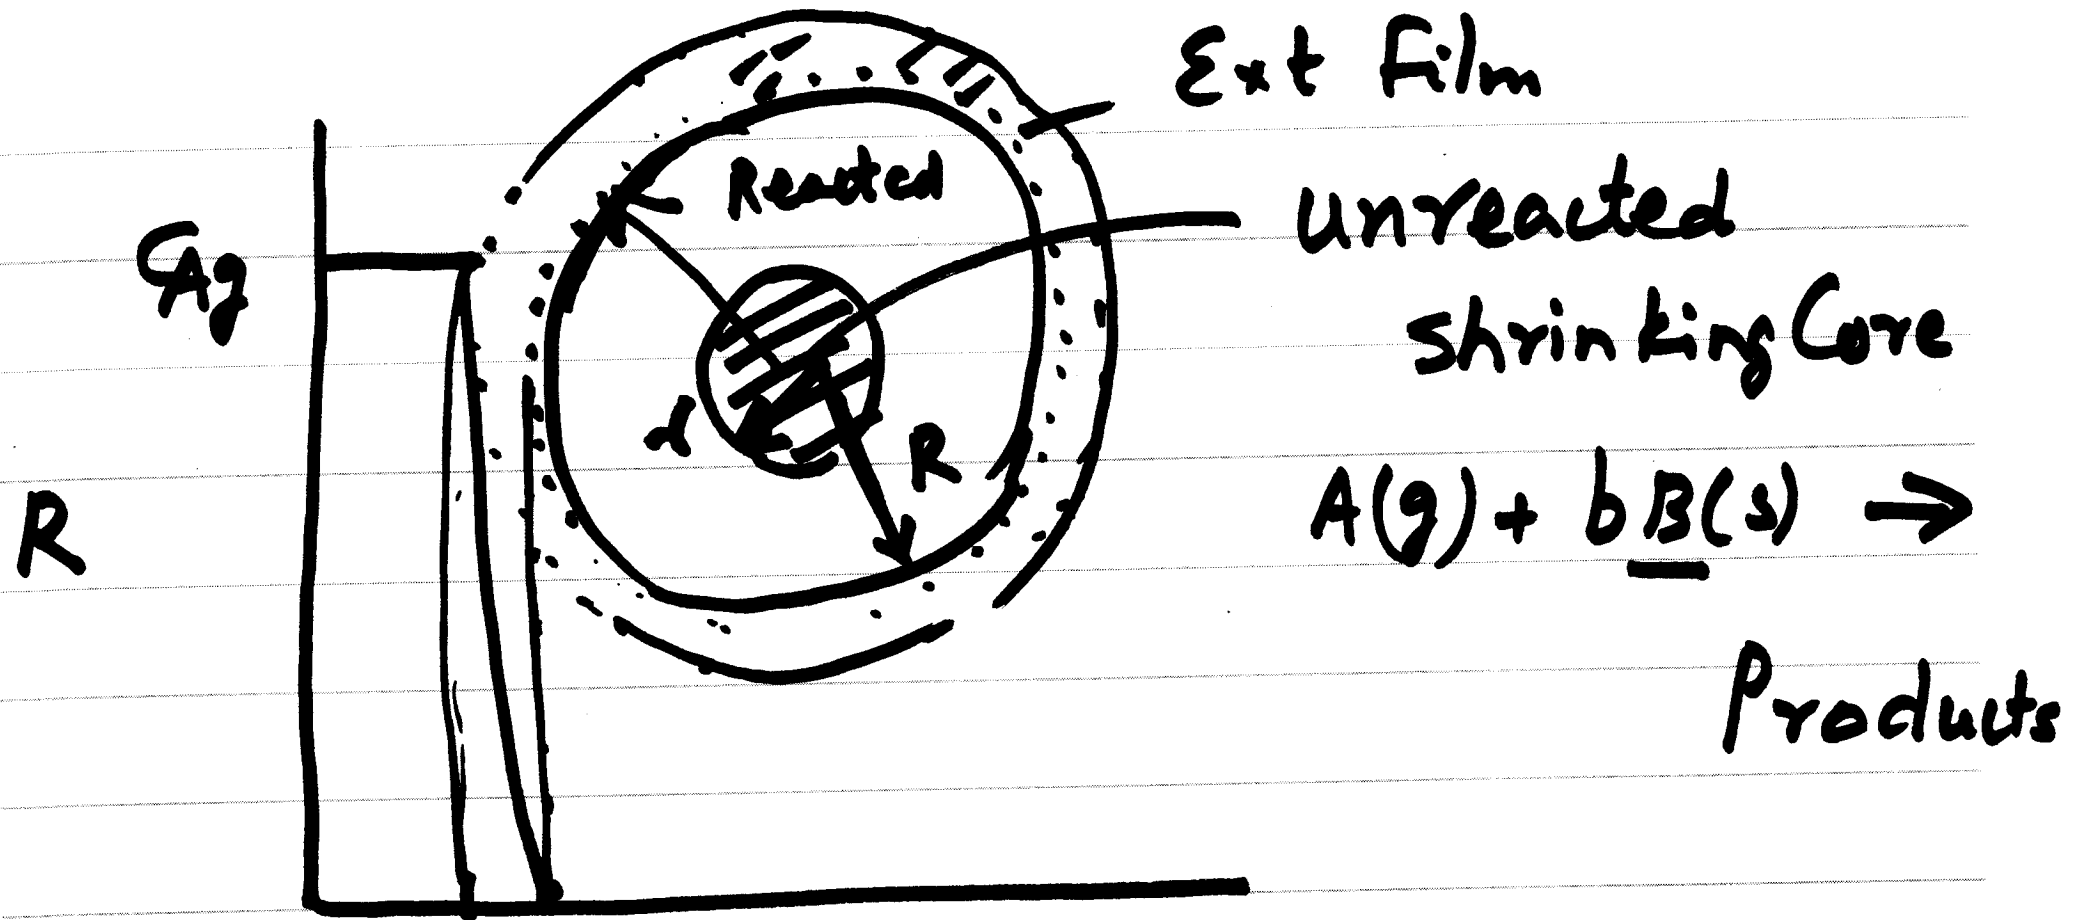 Ext Film
Reacted
unreacted
CAg
shrinking Core
r
R
A(g) + bB(s) →
R
Products